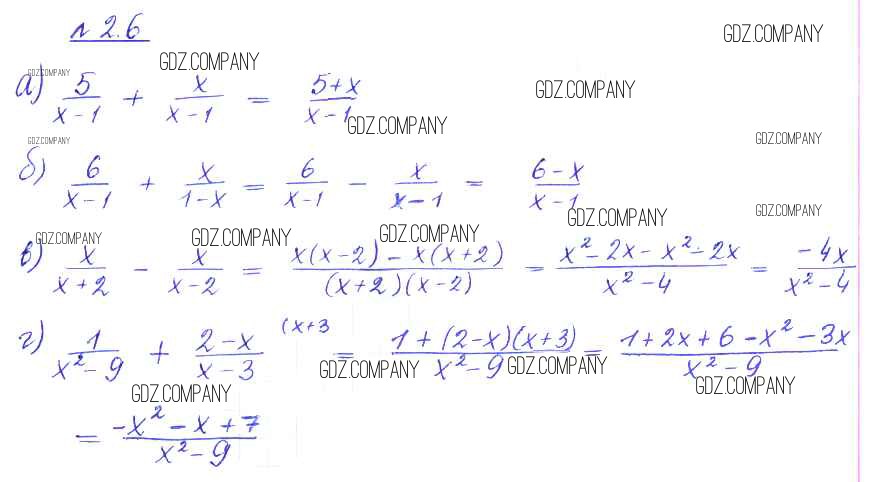 № 2.6
GDZ.COMPANY
GDZ.COMPANY
GDZ.COMPANY
GDZ.COMPANY
а) 5/(x-1) + x/(x-1) = (5+x)/(x-1)
GDZ.COMPANY
GDZ.COMPANY
GDZ.COMPANY
б) 6/(x-1) + x/(1-x) = 6/(x-1) - x/(x-1) = (6-x)/(x-1)
GDZ.COMPANY
GDZ.COMPANY
GDZ.COMPANY
GDZ.COMPANY
GDZ.COMPANY
в) x/(x+2) - x/(x-2) = (x(x-2) - x(x+2))/((x+2)(x-2)) = (x²-2x-x²-2x)/(x²-4) = (-4x)/(x²-4)
г) 1/(x²-9) + (2-x)/(x-3) (x+3 = (1+(2-x)(x+3))/(x²-9) = (1+2x+6-x²-3x)/(x²-9)
GDZ.COMPANY
GDZ.COMPANY
GDZ.COMPANY
GDZ.COMPANY
= (-x²-x+7)/(x²-9)